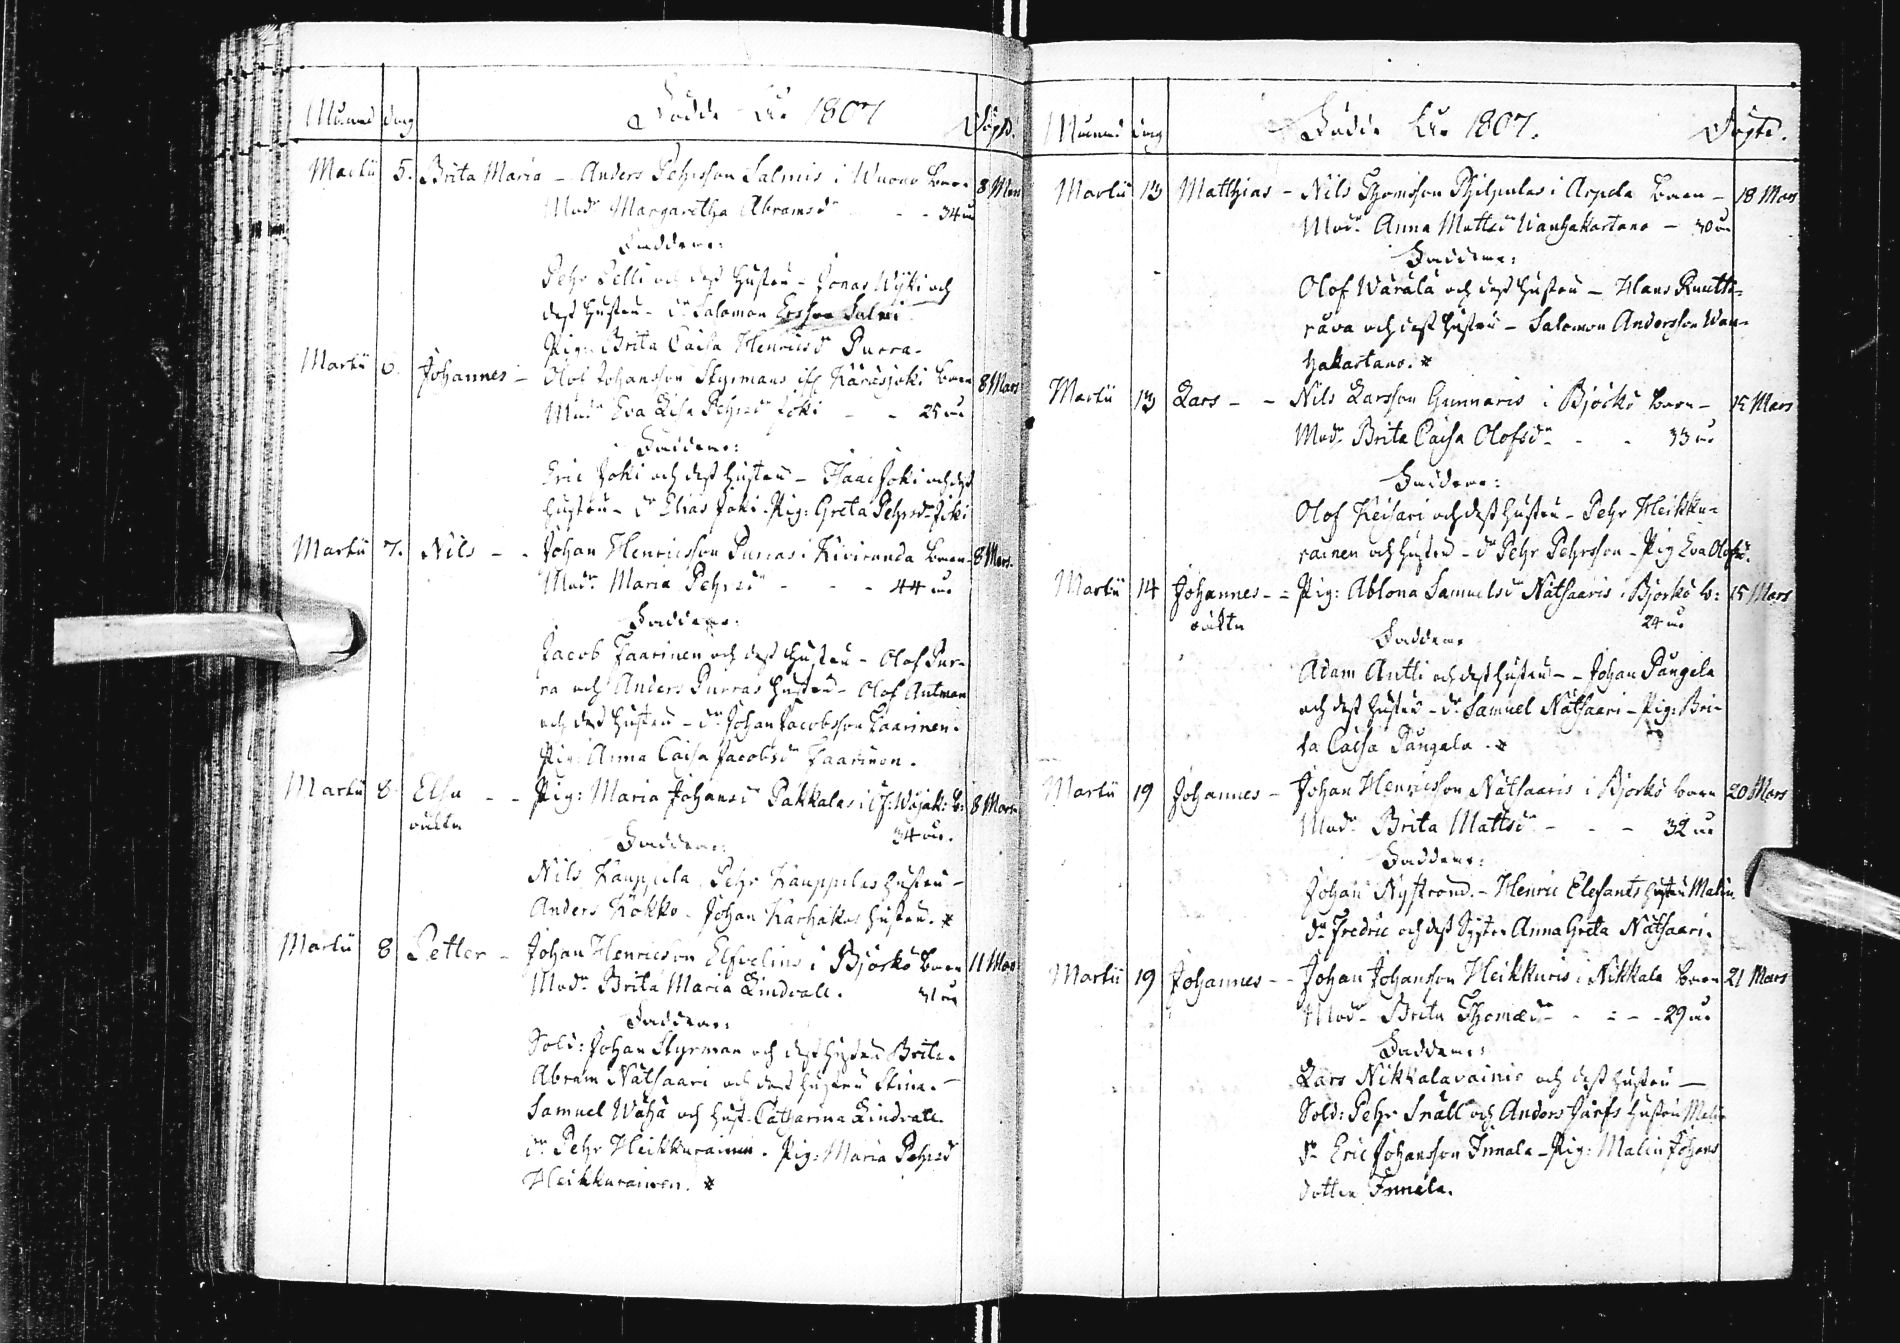 Månad dag Födde År 1807 Döpt.
Martii 5. Brita Maria – Anders Pehrsson Salmis i Wuono barn 8 Mars
Mod:r Margaretha Abramsd:r - - 34 år
Faddrar:
Pehr Pelli och dess hustru – Jonas Wyki och
dess hustru – Dr. Salomon Ersson Salmi
Pig: Brita Caisa Henricsd:r Purra.
Martii 6. Johannes – Olof Johansson Styrmans i Karasjoki barn 8 Mars
Mod:r Eva Lisa Pehrsd:r Joki - - 25 år
Faddrar:
Eric Joki och dess hustru – Isaac Joki och dess
hustru – Dr. Elias Joki. Pig: Greta Pehrsd:r Joki
Martii 7. Nils – Johan Henricsson Purras i Kiviranda barn 8 Mars.
Mod:r Maria Pehrsd:r - - - 44 år
Faddrar:
Jacob Kaarinen och dess hustru – Olof Pur-
ra och Anders Purras hustru – Olof Antman
och dess hustru – Dr. Johan Jacobsson Kaarinen.
Pig: Anna Caisa Jacobsd:r Kaarinen.
Martii 8 Elsa – Pig: Maria Johansd:r Pakkalas i b: 8 Mars
oäkta 34 år.
Faddrar:
Nils Kauppila. Pehr Kauppilas hustru –
Anders Kokko. Johan Karhakas hustru. *
Martii 8 Petter – Johan Henricson Elfvelins i Björkö barn 11 Mars
Mod:r Brita Maria Lindvall. 31 år
Faddrar:
Sold: Johan Styrman och dess hustru Brita.
Abram Nätsaari och dess hustru Stina. –
Samuel Wähä och hust. Catharina Lindvall.
Dr. Pehr Heikkurainen. Pig: Maria Pehrsd
Heikkurainen. *
Månad dag Födde År 1807. Döpte.
Martii 13 Matthias – Nils Thomsson Philpulas i Arpela barn – 18 Mars
Mod:r Anna Mattsd:r Wanhakartano – 30 år
Faddrar:
Olof Wärälä och dess hustru – Hans Knutti-
räva och dess hustru – Salomon Andersson Wan-
hakartano. *
Martii 13 Lars – – Nils Larsson Gunnaris i Björkö barn – 15 Mars
Mod:r Brita Caisa Olofsd:r - - 33 år
Faddrar:
Olof Keisari och dess hustru – Pehr Heikku-
rainen och hustru – Dr. Pehr Pehrsson – Pig Eva Olofsd:r
Martii 14 Johannes – Pig: Ablona Samuelsd:r Nätsaaris i Björkö b: 15 Mars
oäkta 24 år
Faddrar
Adam Antti och dess hustru – – Johan Pangela
och dess hustru – Dr. Samuel Nätsaari – Pig: Bri-
ta Caisa Pangela. *
Martii 19 Johannes – Johan Henricsson Nätsaaris i Björkö barn 20 Mars
Mod:r Brita Mattsd:r - - – 32 år
Faddrar:
Johan Nyström. – Henric Elefants hustru Malin.
Dr. Fredric och dess Syster Anna Greta Nätsaari.
Martii 19 Johannes – Johan Johansson Heikkuris i Nikkala barn 21 Mars
Mod:r Brita Thomæd:r - - – 29 år
Faddrar:
Lars Nikkalavainio och dess hustru –
Sold: Pehr Snäll och Anders Järfs hustru Malin
Dr. Eric Johansson Innala – Pig: Malin Johans
dotter Innala.